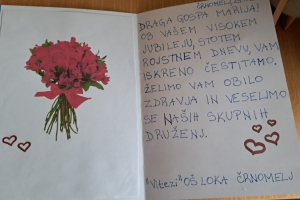 ČRNOMELJ,
DRAGA GOSPA MARIJA!
OB VAŠEM VISOKEM
JUBILEJU, STOTEM
ROJSTNEM DNEVU, VAM
ISKRENO ČESTITAMO.
ŽELIMO VAM OBILO
ZDRAVJA IN VESELIMO
SE NAŠIH SKUPNIH
DRUŽENJ.
"Vitezi" OŠ LOKA ČRNOMELJ